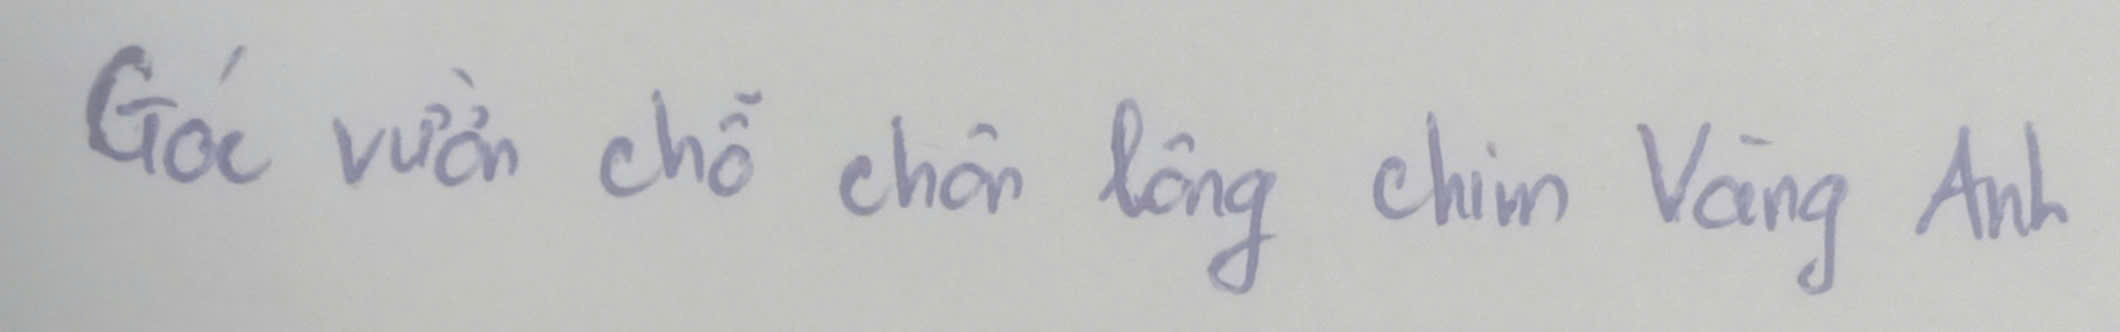 Góc vườn chỗ chôn lông chim Vàng Anh